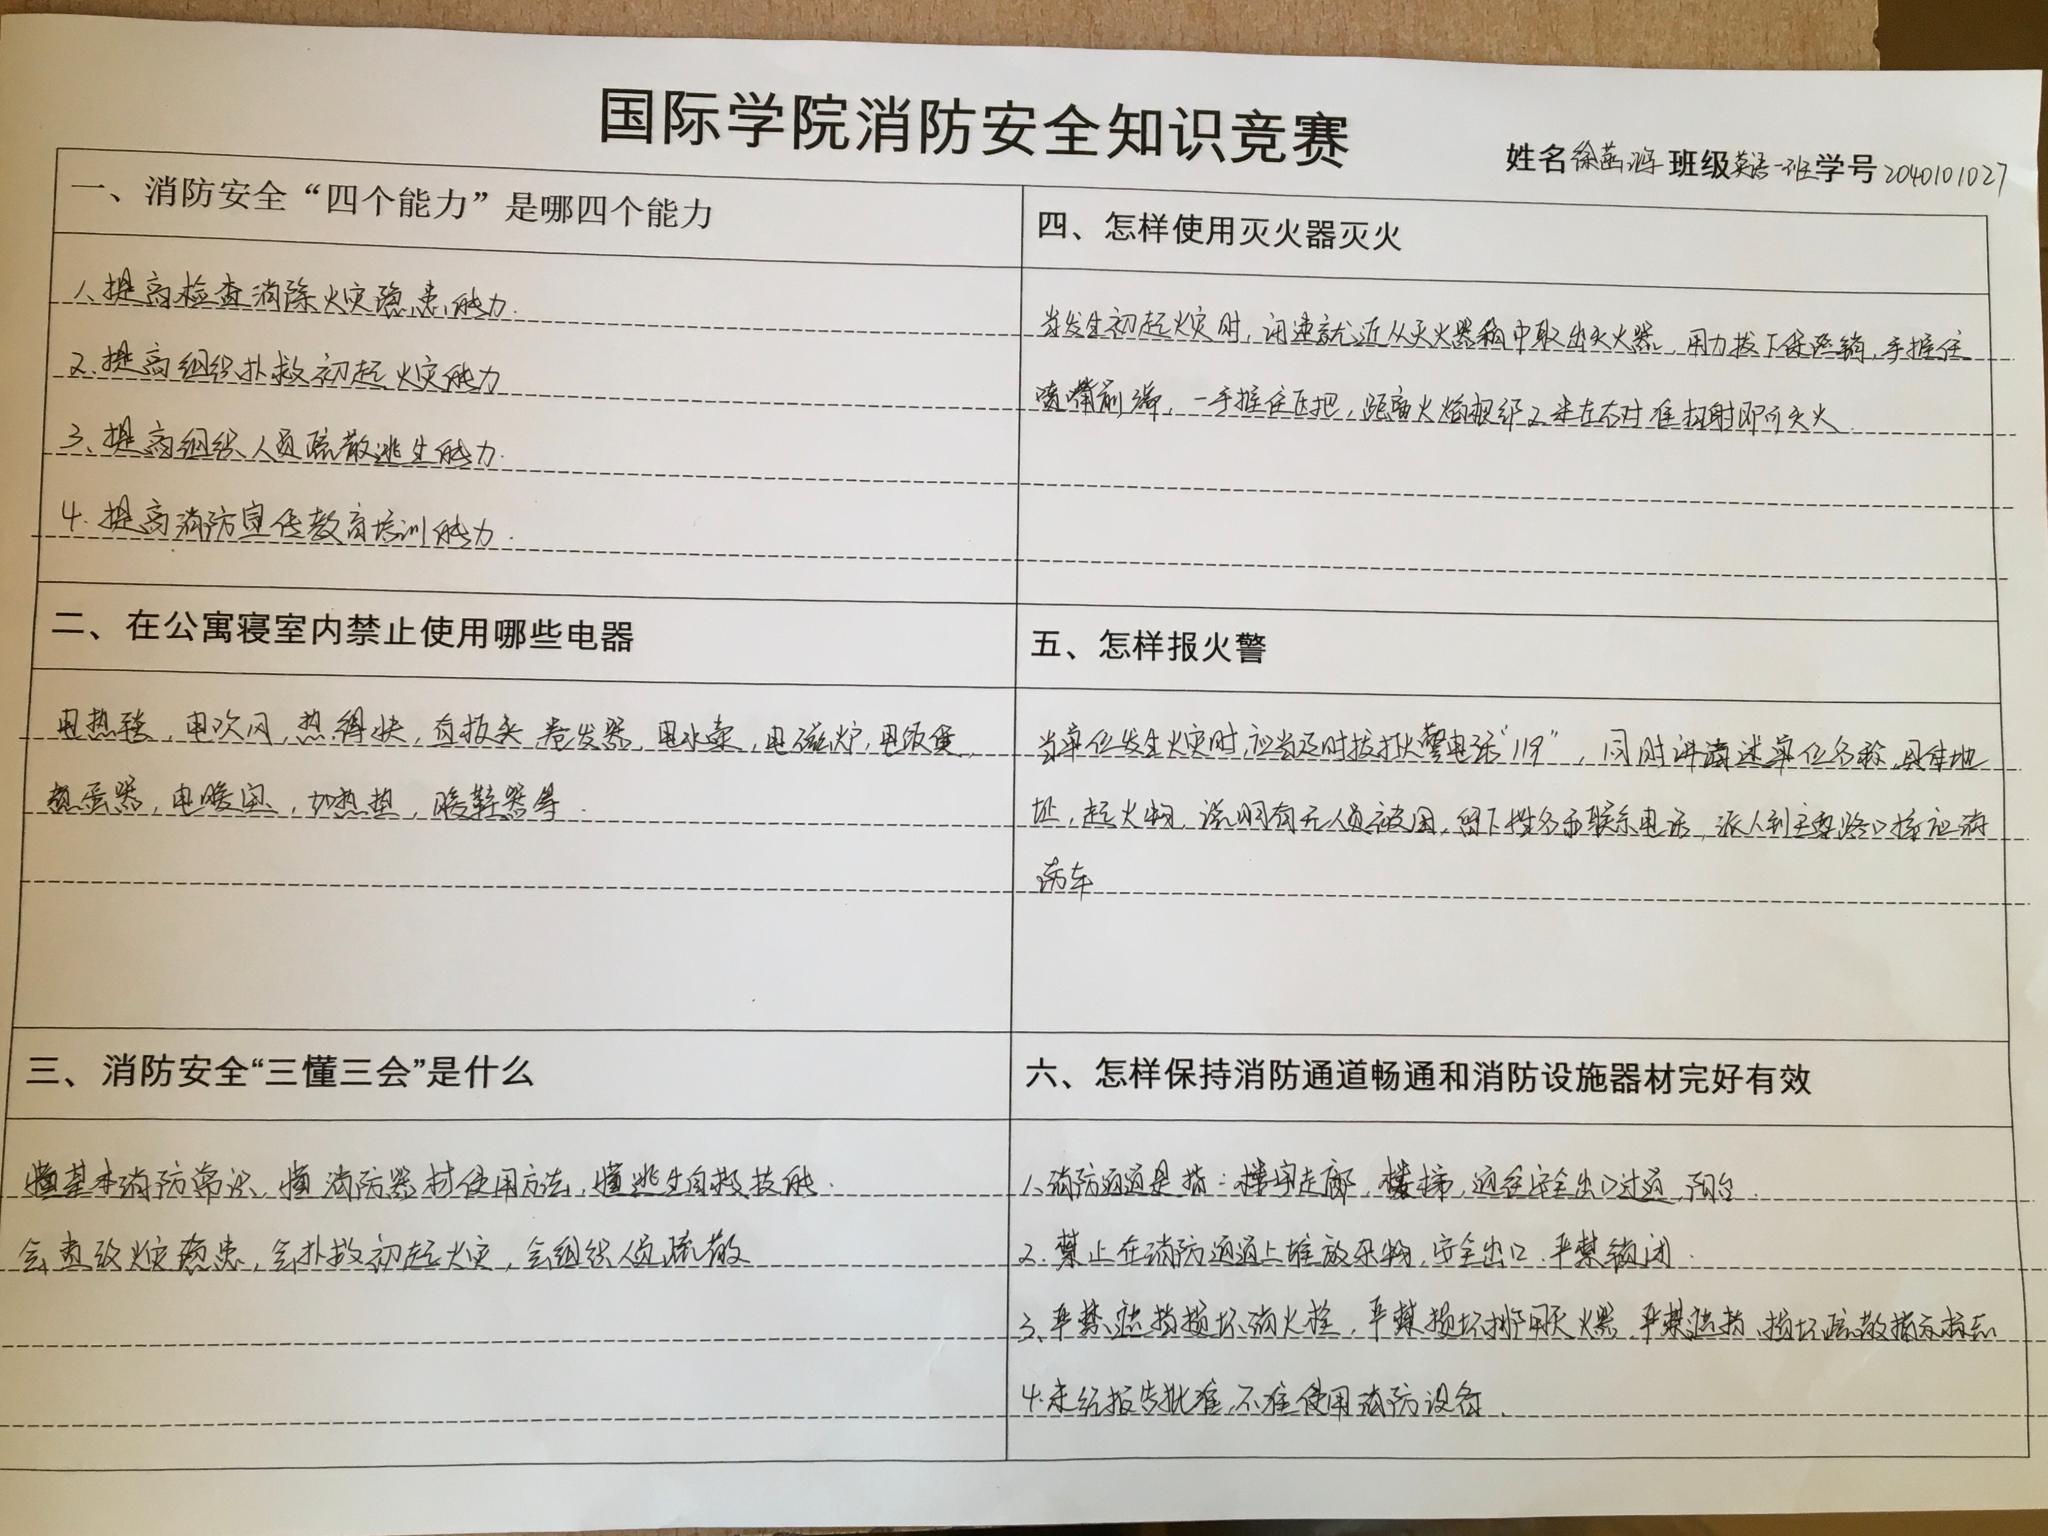 国际学院消防安全知识竞赛
姓名徐菡 班级英语一班学号2040101027
一、消防安全“四个能力”是哪四个能力
1、提高检查消除火灾隐患能力.
2.提高组织扑救初起火灾能力
3、提高组织人员疏散逃生能力.
4.提高消防宣传教育培训能力.
二、在公寓寝室内禁止使用哪些电器
电热毯,电吹风,热得快,直板夹 卷发器,电水壶,电磁炉,电饭煲,
煮蛋器,电暖宝,加热垫,暖鞋器等.
三、消防安全“三懂三会”是什么
懂基本消防常识、懂消防器材使用方法,懂逃生自救技能.
会查改火灾隐患,会扑救初起火灾,会组织人员疏散
四、怎样使用灭火器灭火
当发生初起火灾时,迅速就近从灭火器箱中取出灭火器,用力拔下保险销,手握住
喷嘴前端,一手握住压把,距离火焰根部2米左右对准扫射即可灭火
五、怎样报火警
当单位发生火灾时,应当及时拨打火警电话“119”,同时讲清述单位名称,具体地
址,起火物,说明有无人员被困,留下姓名和联系电话,派人到主要路口接应消
防车
六、怎样保持消防通道畅通和消防设施器材完好有效
1、消防通道是指:楼宇走廊,楼梯,通往安全出口过道,阳台.
2.禁止在消防通道上堆放杂物,安全出口.严禁锁闭.
3、严禁遮挡损坏消火栓,严禁损坏挪用灭火器.严禁遮挡、损坏疏散指示标志
4.未经报告批准,不准使用消防设备.